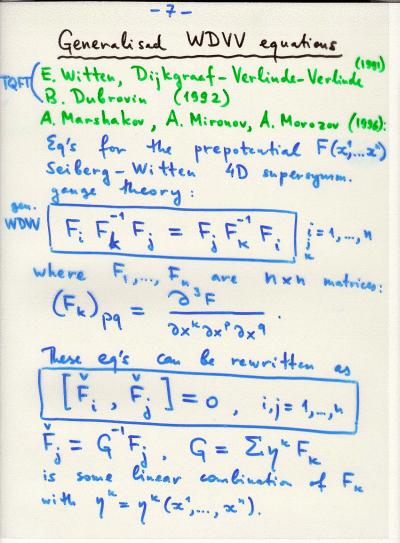 - 7 -
Generalised WDVV equations
(1991)
TQFT ( E. Witten, Dijkgraaf-Verlinde-Verlinde
B. Dubrovin (1992)
A. Marshakov, A. Mironov, A. Morozov (1996):
Eq's for the prepotential F(x¹,...xⁿ)
Seiberg-Witten 4D supersymm.
gauge theory:
gen. WDVV
F_i F_k^{-1} F_j = F_j F_k^{-1} F_i i, j, k = 1,...,n
where F_1,..., F_n are n×n matrices:
(F_k)_{pq} = ∂³F / ∂x^k ∂x^p ∂x^q .
These eq's can be rewritten as
[F̌_i , F̌_j] = 0 , i,j = 1,...,n
F̌_j = G^{-1} F_j , G = Σ η^k F_k
is some linear combination of F_k
with η^k = η^k (x¹,...,xⁿ).